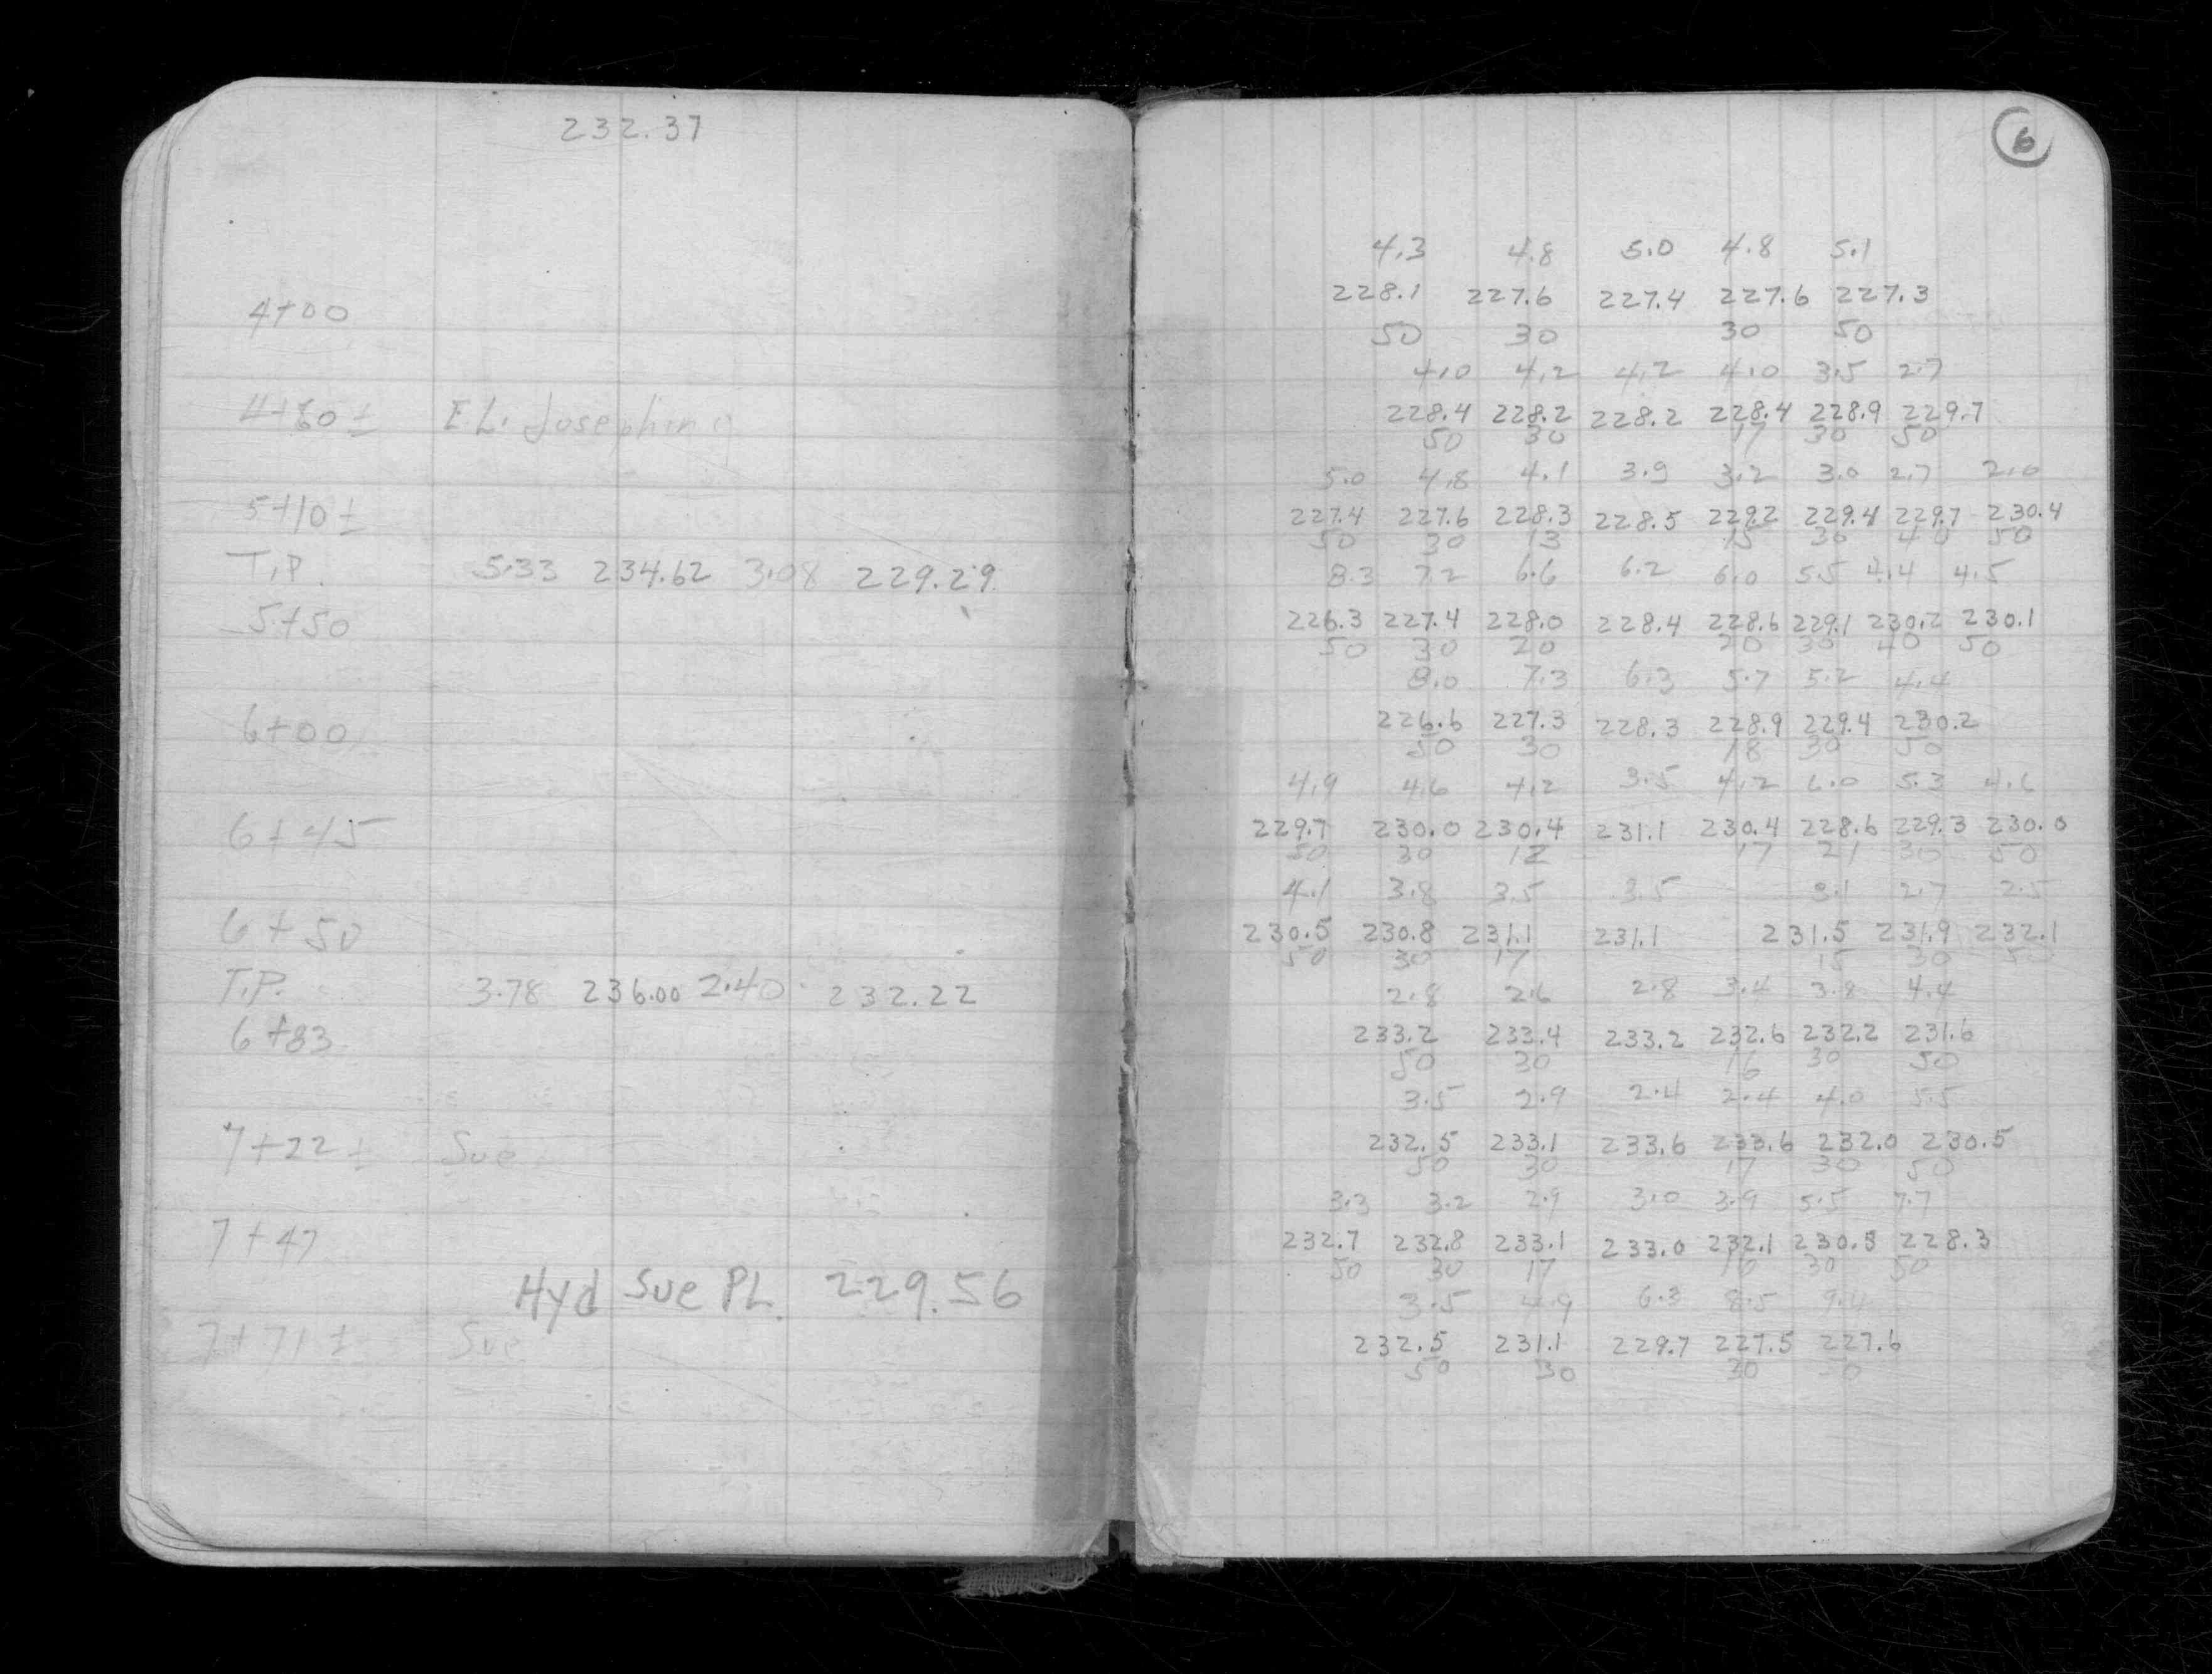 232.37
4+00
4+80 ± E.L. Josephine
5+10 ±
T.P. 5.33 234.62 3.08 229.29
5+50
6+00
6+45
6+50
T.P. 3.78 236.00 2.40 232.22
6+83
7+22 ± Sue
7+47
Hyd Sue PL. 229.56
7+71 ± Sue
6
4.3 4.8 5.0 4.8 5.1
228.1 227.6 227.4 227.6 227.3
50 30 30 50
4.0 4.2 4.2 4.0 3.5 2.7
228.4 228.2 228.2 228.4 228.9 229.7
50 30 17 30 50
5.0 4.8 4.1 3.9 3.2 3.0 2.7 2.0
227.4 227.6 228.3 228.5 229.2 229.4 229.7 230.4
50 30 13 15 30 40 50
8.3 7.2 6.6 6.2 6.0 5.5 4.4 4.5
226.3 227.4 228.0 228.4 228.6 229.1 230.2 230.1
50 30 20 20 30 40 50
8.0 7.3 6.3 5.7 5.2 4.4
226.6 227.3 228.3 228.9 229.4 230.2
50 30 18 30 50
4.9 4.6 4.2 3.5 4.2 6.0 5.3 4.6
229.7 230.0 230.4 231.1 230.4 228.6 229.3 230.0
50 30 12 17 21 30 50
4.1 3.8 3.5 3.5 3.1 2.7 2.5
230.5 230.8 231.1 231.1 231.5 231.9 232.1
50 30 17 15 30 50
2.8 2.6 2.8 3.4 3.8 4.4
233.2 233.4 233.2 232.6 232.2 231.6
50 30 16 30 50
3.5 2.9 2.4 2.4 4.0 5.5
232.5 233.1 233.6 233.6 232.0 230.5
50 30 17 30 50
3.3 3.2 2.9 3.0 3.9 5.5 7.7
232.7 232.8 233.1 233.0 232.1 230.5 228.3
50 30 17 16 30 50
3.5 4.9 6.3 8.5 9.4
232.5 231.1 229.7 227.5 227.6
50 30 30 50